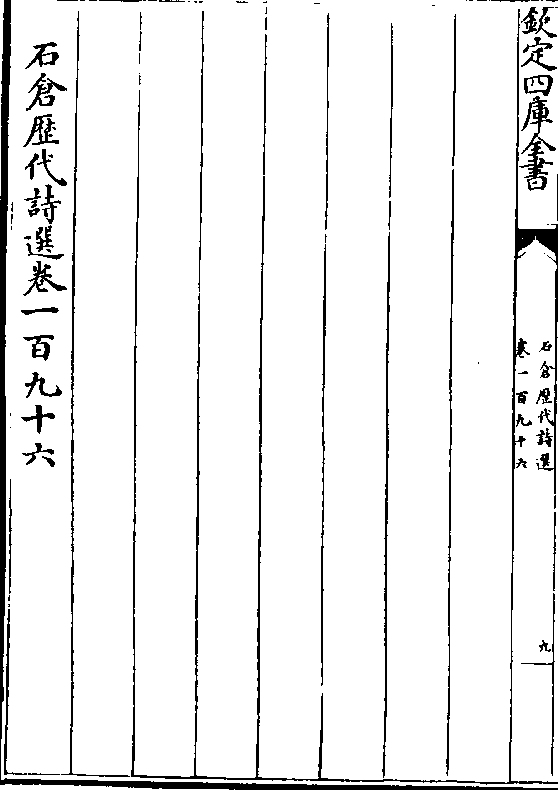 欽定四庫全書
石倉歴代詩選
卷一百九十六
九
石倉歴代詩選卷一百九十六